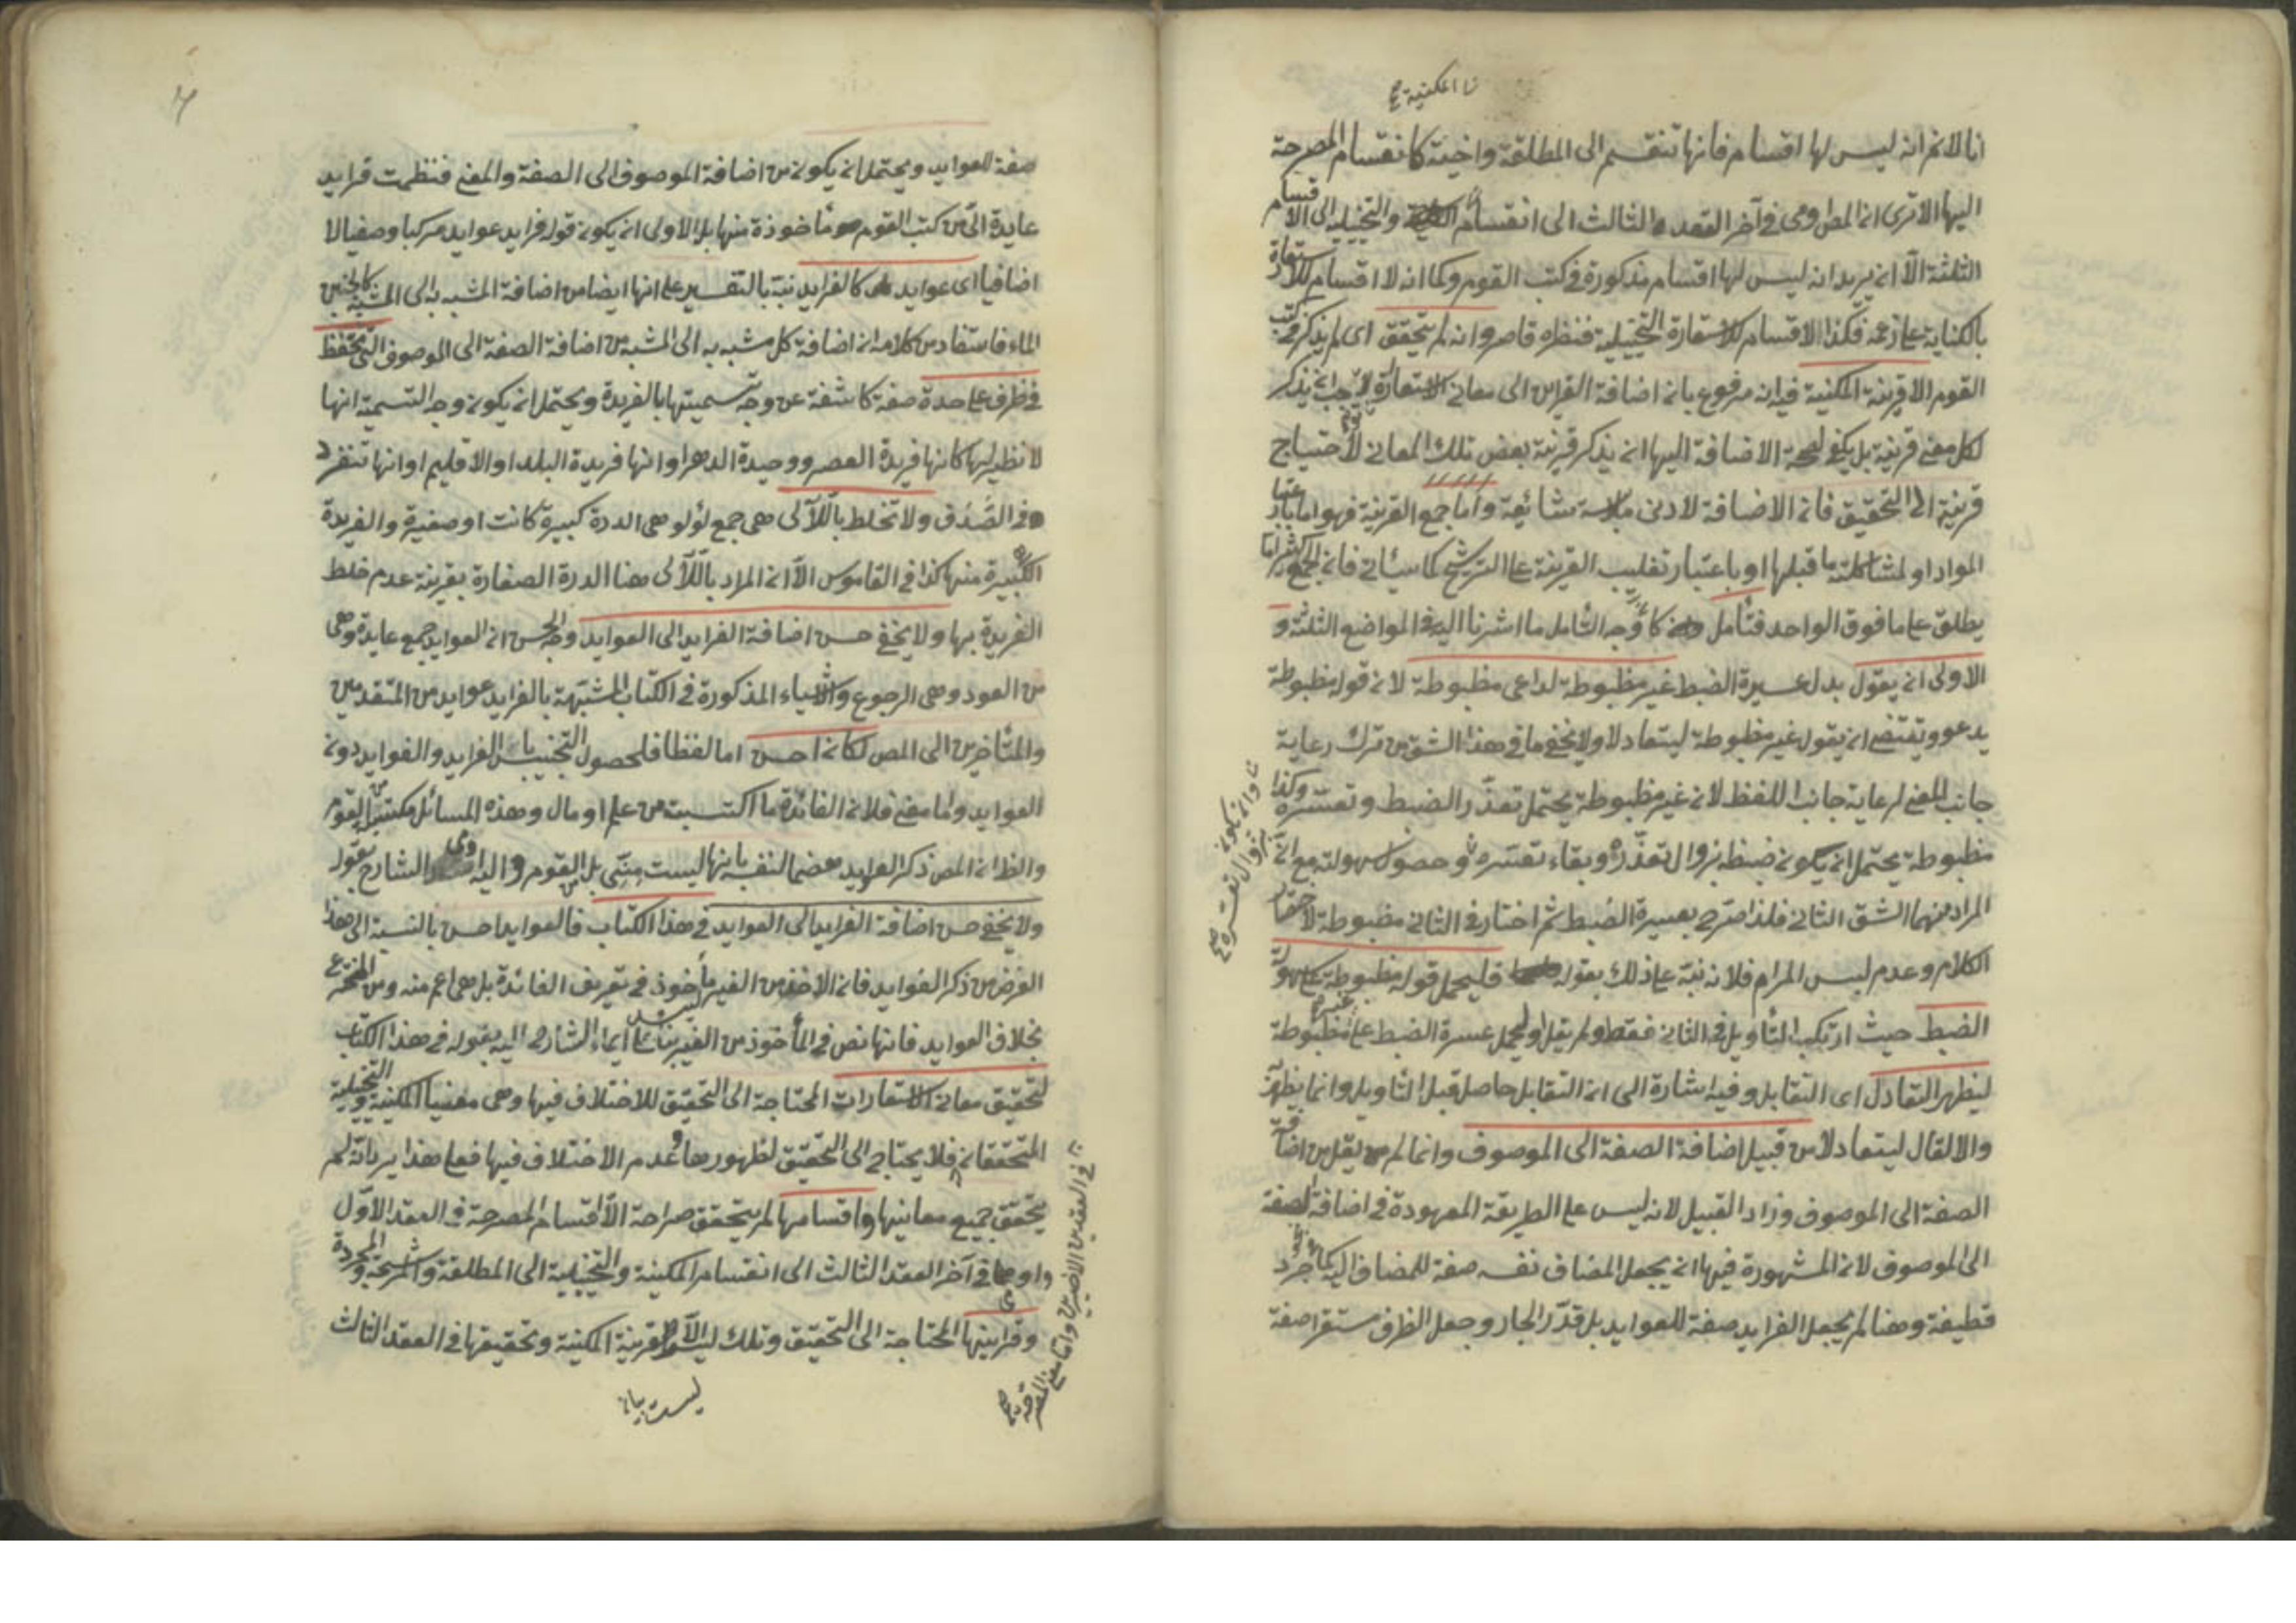 نا المكنية صح
انا لانم انه ليس لها اقسام فانها تنقسم الى المطلقة واختيه كانقسام المصرحة
اليها الا ترى ان المص اومى في آخر العقد الثالث الى انقسام والتخييلية الى الاقسام
الثلثة الا ان يريد انه ليس لها اقسام مذكورة في كتب القوم وكما انه لا اقسام للاستعارة
بالكناية على زعمه فكذا لا اقسام للاستعارة التخييلية فنظره قاصر وانه لم يتحقق اى لم يذكر في كتب
القوم الا قرينة المكنية فيه انه مرفوع بان اضافة القراين الى معانى الاستعارة لا يوجب ان يذكر
لكل معنى قرينة بل يكفى لصحة الاضافة اليها ان يذكر قرينة بعض تلك المعانى لاحتياج
قرينة الى التحقيق فان الاضافة لادنى ملابسة شائعة واما جمع القرينة فهو اما باعتبار
المواد او لمشاكلة ما قبلها او باعتبار تغليب القرينة على الترشيح كما سيأتى فان الجمع كثيرا ما
يطلق على ما فوق الواحد فتأمل كا وجه التأمل ما اشرنا اليه في المواضع الثلثة و
الاولى ان يقول بدل عسيرة الضبط غير مظبوطة لداعى مظبوطة لان قوله مظبوطة
يدعو ويقتضى ان يقول غير مظبوطة ليتعادلا ولا يخفى ما في هذا الشق من ترك رعاية
جانب المعنى لرعاية جانب اللفظ لان غير مظبوطة يحتمل تعذر الضبط وتعسره وكذا
مظبوطة يحتمل ان يكون ضبطه بزوال تعذره وبقاء تعسره وحصول سهولته مع ان
نا وان يكون بزوال تعسره صح
المراد منهما الشق الثانى فلذا صرح بعسيرة الضبط ثم اختار في الثانى مضبوطة لاختصار
الكلام وعدم ليس المرام فلانه نبه على ذلك بقوله فليحمل قوله مظبوطة على سهولة
الضبط حيث ارتكب التأويل في الثانى فقط ولم يقل وليحمل عسرة الضبط على غير مظبوطة
ليظهر التعادل اى التقابل وفيه اشارة الى ان التقابل حاصل قبل التأويل وانما يظهر به
والا لقال ليتعادلا من قبيل اضافة الصفة الى الموصوف وانما لم يقل من اضافة
الصفة الى الموصوف وزاد القبيل لانه ليس على الطريقة المعهودة في اضافة الصفة
الى الموصوف لان المشهورة فيها ان يجعل المضاف نفسه صفة للمضاف اليه كما في جرد
قطيفة وهنا لم يجعل الفرايد صفة للعوايد بل قدّر الجار وجعل الظرف مستقرا صفة
صفة للعوايد ويحتمل ان يكون من اضافة الموصوف الى الصفة والمعنى فنظمت فرايد
عايدة الىّ من كتب القوم مأخوذة منها بل الاولى ان يكون قوله فرايد عوايد مركبا وصفيا لا
اضافيا اى عوايد كالفرايد نبه بالتفسير على انها ايضا من اضافة المشبه به الى المشبه كلجين
الماء فاستفاد من كلامه ان اضافة كل مشبه به الى المشبه من اضافة الصفة الى الموصوف التى تحفظ
في ظرف على حدة صفة كاشفة عن وجه تسميتها بالفريدة ويحتمل ان يكون وجه التسمية انها
لا نظير لها كانها فريدة العصر ووحيدة الدهر او انها فريدة البلد او الاقليم او انها تنفرد
في الصَّدف ولا تخلط باللآلى هى جمع لؤلؤ هى الدرة كبيرة كانت او صغيرة والفريدة
الكبيرة منها كذا في القاموس الا ان المراد باللآلى هنا الدرة الصغارة بقرينة عدم خلط
الفريدة بها ولا يخفى حسن اضافة الفرايد الى العوايد وجه الحسن ان العوايد جمع عايدة وهى
من العود وهى الرجوع والاشياء المذكورة في الكتاب المشبهة بالفرايد عوايد من المتقدمين
والمتأخرين الى المص لكان احسن اما لفظا فلحصول التجنيس بين الفرايد والفوايد دون
العوايد واما معنى فلان الفائدة ما اكتسبت من علم او مال وهذه المسائل مكتسبة من القوم
والظ ان المص ذكر العوايد هضما لنفسه بانها ليست منّى بل من القوم واليه اومى الشارح بقوله
ولا يخفى حسن اضافة الفرايد الى العوايد في هذا الكتاب فالعوايد احسن بالنسبة الى هذا
الغرض من ذكر الفوايد فان الاخذ من الغير مأخوذ في تعريف الفائدة بل هى اعم منه ومن المخترع
بخلاف العوايد فانها نص في المأخوذ من الغير بناء على ايماء الشارح اليه بقوله في هذا الكتاب
لتحقيق معانى الاستعارات المحتاجة الى التحقيق للاختلاف فيها وهى معنيا المكنية والتخييلية
المتحققان فلا يحتاج الى التحقيق لظهورها وعدم الاختلاف فيها فعلى هذا يرد انه لم
يتحقق جميع معانيها واقسامها لم يتحقق صراحة الا اقسام المصرحة في العقد الاول
واومى في آخر العقد الثالث الى انقسام المكنية والتخييلية الى المطلقة والمرشحة والمجردة
وقراينها المحتاجة الى التحقيق وتلك ليس الا قرينة المكنية وتحقيقها في العقد الثالث
في العقدين الاخيرين واما معنى المصرحة صح
ليست ببيان